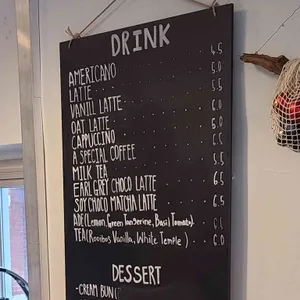 DRINK
AMERICANO 4.5
LATTE 5.0
VANILL LATTE 5.5
OAT LATTE 6.0
CAPPUCCINO 5.0
A SPECIAL COFFEE
MILK TEA 5.5
EARL GREY CHOCO LATTE 6.5
SOY CHOCO MATCHA LATTE 6.5
ADE (Lemon, Green Tangerine, Basil Tomato)
TEA (Rooibos Vanilla, White Temple) 6.0
DESSERT
-CREAM BUN (